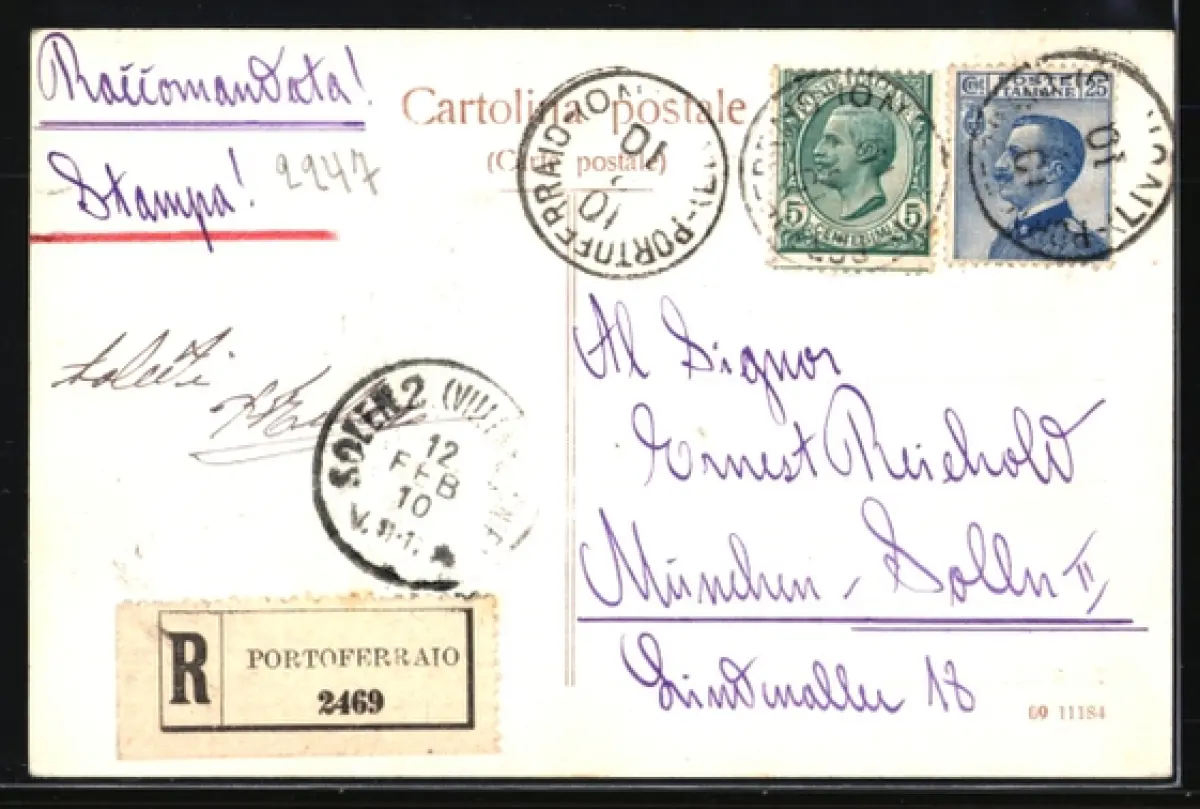 Raccomandata!
Stampa! 2247
Cartolina postale
(Carte postale)
PORTOFERRAIO
10
10
5 5
POSTE ITALIANE
25
Saluti
SOLLN 2
12
FEB
10
Al Signor
Ernest Reichold
München - Solln II,
Lindenallee 18
R PORTOFERRAIO
2469
09 11184